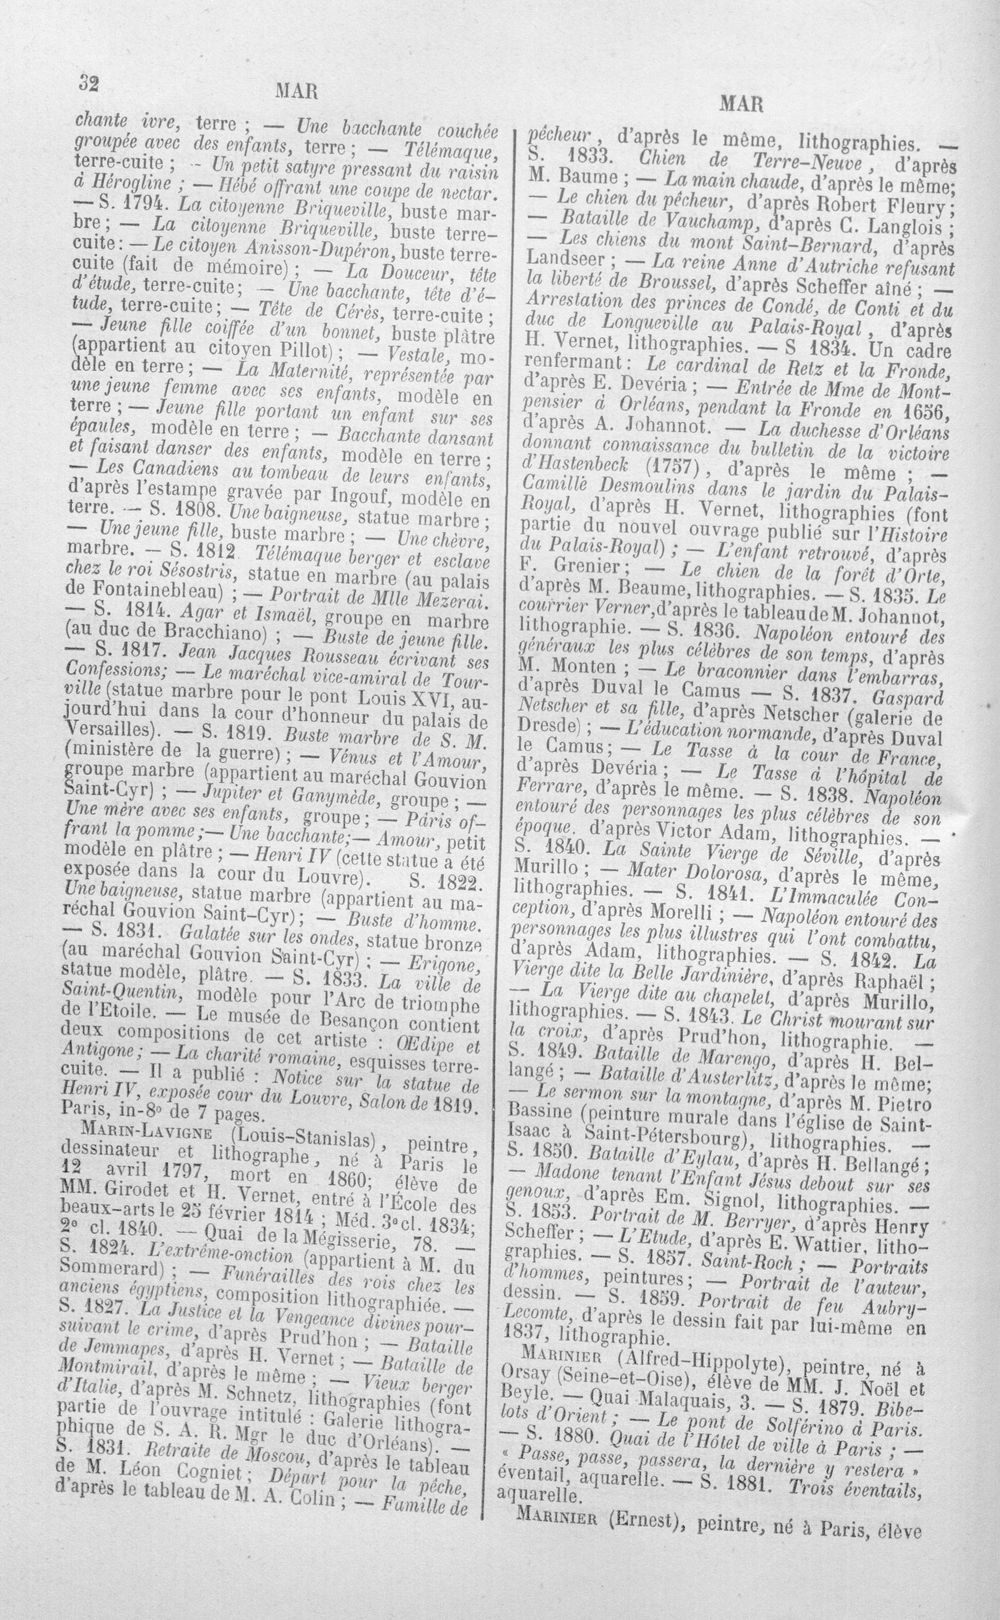 32
MAR
MAR
chante ivre, terre ; — Une bacchante couchée
groupée avec des enfants, terre ; — Télémaque,
terre-cuite ; - Un petit satyre pressant du raisin
à Hérogline ; — Hébé offrant une coupe de nectar.
— S. 1794. La citoyenne Briqueville, buste mar-
bre ; — La citoyenne Briqueville, buste terre-
cuite : — Le citoyen Anisson-Dupéron, buste terre-
cuite (fait de mémoire) ; — La Douceur, tête
d'étude, terre-cuite ; — Une bacchante, tête d'é-
tude, terre-cuite ; — Tête de Cérès, terre-cuite ;
— Jeune fille coiffée d'un bonnet, buste plâtre
(appartient au citoyen Pillot) ; — Vestale, mo-
dèle en terre ; — La Maternité, représentée par
une jeune femme avec ses enfants, modèle en
terre ; — Jeune fille portant un enfant sur ses
épaules, modèle en terre ; — Bacchante dansant
et faisant danser des enfants, modèle en terre ;
— Les Canadiens au tombeau de leurs enfants,
d'après l'estampe gravée par Ingouf, modèle en
terre. — S. 1808. Une baigneuse, statue marbre ;
— Une jeune fille, buste marbre ; — Une chèvre,
marbre. — S. 1812 Télémaque berger et esclave
chez le roi Sésostris, statue en marbre (au palais
de Fontainebleau) ; — Portrait de Mlle Mezerai.
— S. 1814. Agar et Ismaël, groupe en marbre
(au duc de Bracchiano) ; — Buste de jeune fille.
— S. 1817. Jean Jacques Rousseau écrivant ses
Confessions ; — Le maréchal vice-amiral de Tour-
ville (statue marbre pour le pont Louis XVI, au-
jourd'hui dans la cour d'honneur du palais de
Versailles). — S. 1819. Buste marbre de S. M.
(ministère de la guerre) ; — Vénus et l'Amour,
groupe marbre (appartient au maréchal Gouvion
Saint-Cyr) ; — Jupiter et Ganymède, groupe ; —
Une mère avec ses enfants, groupe ; — Pâris of-
frant la pomme ; — Une bacchante ; — Amour, petit
modèle en plâtre ; — Henri IV (cette statue a été
exposée dans la cour du Louvre). S. 1822.
Une baigneuse, statue marbre (appartient au ma-
réchal Gouvion Saint-Cyr) ; — Buste d'homme.
— S. 1831. Galatée sur les ondes, statue bronze
(au maréchal Gouvion Saint-Cyr) ; — Erigone,
statue modèle, plâtre. — S. 1833. La ville de
Saint-Quentin, modèle pour l'Arc de triomphe
de l'Etoile. — Le musée de Besançon contient
deux compositions de cet artiste : Œdipe et
Antigone ; — La charité romaine, esquisses terre-
cuite. — Il a publié : Notice sur la statue de
Henri IV, exposée cour du Louvre, Salon de 1819.
Paris, in-8° de 7 pages.
MARIN-LAVIGNE (Louis-Stanislas), peintre,
dessinateur et lithographe, né à Paris le
12 avril 1797, mort en 1860; élève de
MM. Girodet et H. Vernet, entré à l'École des
beaux-arts le 25 février 1814 ; Méd. 3e cl. 1834;
2e cl. 1840. — Quai de la Mégisserie, 78. —
S. 1824. L'extrême-onction (appartient à M. du
Sommerard) ; — Funérailles des rois chez les
anciens égyptiens, composition lithographiée. —
S. 1827. La Justice et la Vengeance divines pour-
suivant le crime, d'après Prud'hon ; — Bataille
de Jemmapes, d'après H. Vernet ; — Bataille de
Montmirail, d'après le même ; — Vieux berger
d'Italie, d'après M. Schnetz, lithographies (font
partie de l'ouvrage intitulé : Galerie lithogra-
phique de S. A. R. Mgr le duc d'Orléans). —
S. 1831. Retraite de Moscou, d'après le tableau
de M. Léon Cogniet ; Départ pour la pêche,
d'après le tableau de M. A. Colin ; — Famille de
pêcheur, d'après le même, lithographies. —
S. 1833. Chien de Terre-Neuve, d'après
M. Baume ; — La main chaude, d'après le même;
— Le chien du pêcheur, d'après Robert Fleury ;
— Bataille de Vauchamp, d'après C. Langlois ;
— Les chiens du mont Saint-Bernard, d'après
Landseer ; — La reine Anne d'Autriche refusant
la liberté de Broussel, d'après Scheffer aîné ; —
Arrestation des princes de Condé, de Conti et du
duc de Longueville au Palais-Royal, d'après
H. Vernet, lithographies. — S 1834. Un cadre
renfermant : Le cardinal de Retz et la Fronde,
d'après E. Devéria ; — Entrée de Mme de Mont-
pensier à Orléans, pendant la Fronde en 1656,
d'après A. Johannot. — La duchesse d'Orléans
donnant connaissance du bulletin de la victoire
d'Hastenbeck (1757), d'après le même ; —
Camille Desmoulins dans le jardin du Palais-
Royal, d'après H. Vernet, lithographies (font
partie du nouvel ouvrage publié sur l'Histoire
du Palais-Royal) ; — L'enfant retrouvé, d'après
F. Grenier ; — Le chien de la forêt d'Orte,
d'après M. Beaume, lithographies. — S. 1835. Le
courrier Verner, d'après le tableau de M. Johannot,
lithographie. — S. 1836. Napoléon entouré des
généraux les plus célèbres de son temps, d'après
M. Monten ; — Le braconnier dans l'embarras,
d'après Duval le Camus — S. 1837. Gaspard
Netscher et sa fille, d'après Netscher (galerie de
Dresde) ; — L'éducation normande, d'après Duval
le Camus ; — Le Tasse à la cour de France,
d'après Devéria ; — Le Tasse à l'hôpital de
Ferrare, d'après le même. — S. 1838. Napoléon
entouré des personnages les plus célèbres de son
époque. d'après Victor Adam, lithographies. —
S. 1840. La Sainte Vierge de Séville, d'après
Murillo ; — Mater Dolorosa, d'après le même,
lithographies. — S. 1841. L'Immaculée Con-
ception, d'après Morelli ; — Napoléon entouré des
personnages les plus illustres qui l'ont combattu,
d'après Adam, lithographies. — S. 1842. La
Vierge dite la Belle Jardinière, d'après Raphaël ;
— La Vierge dite au chapelet, d'après Murillo,
lithographies. — S. 1843. Le Christ mourant sur
la croix, d'après Prud'hon, lithographie. —
S. 1849. Bataille de Marengo, d'après H. Bel-
langé ; — Bataille d'Austerlitz, d'après le même;
— Le sermon sur la montagne, d'après M. Pietro
Bassine (peinture murale dans l'église de Saint-
Isaac à Saint-Pétersbourg), lithographies. —
S. 1850. Bataille d'Eylau, d'après H. Bellangé ;
— Madone tenant l'Enfant Jésus debout sur ses
genoux, d'après Em. Signol, lithographies. —
S. 1853. Portrait de M. Berryer, d'après Henry
Scheffer ; — L'Etude, d'après E. Wattier, litho-
graphies. — S. 1857. Saint-Roch ; — Portraits
d'hommes, peintures ; — Portrait de l'auteur,
dessin. — S. 1859. Portrait de feu Aubry-
Lecomte, d'après le dessin fait par lui-même en
1837, lithographie.
MARINIER (Alfred-Hippolyte), peintre, né à
Orsay (Seine-et-Oise), élève de MM. J. Noël et
Beyle. — Quai Malaquais, 3. — S. 1879. Bibe-
lots d'Orient ; — Le pont de Solférino à Paris.
— S. 1880. Quai de l'Hôtel de ville à Paris ; —
« Passe, passe, passera, la dernière y restera »
éventail, aquarelle. — S. 1881. Trois éventails,
aquarelle.
MARINIER (Ernest), peintre, né à Paris, élève